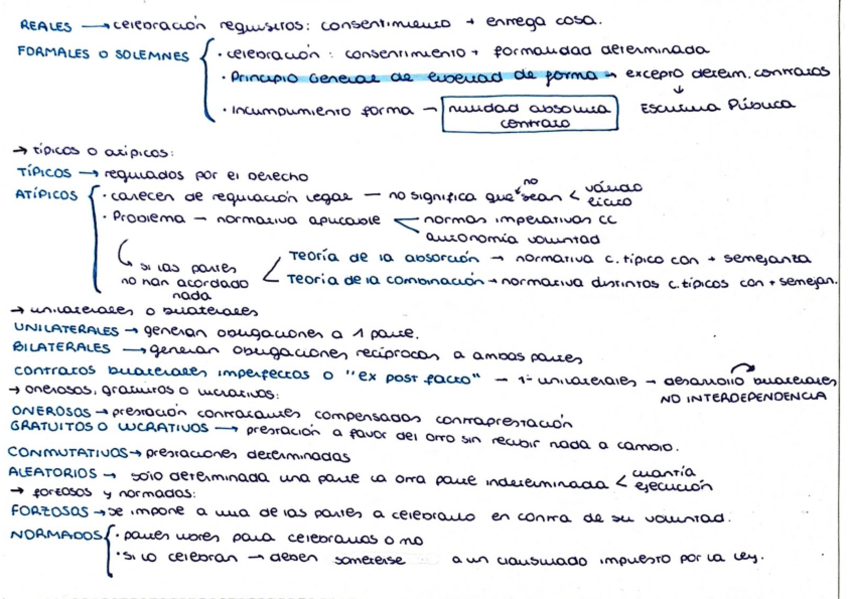 REALES → celebración requisitos: consentimiento + entrega cosa.
FORMALES O SOLEMNES { · celebración: consentimiento + formalidad determinada
· Principio General de libertad de forma → excepto determ. contratos
↓
· Incumplimiento forma → nulidad absoluta contrato
Escritura Pública
→ típicos o atípicos:
TÍPICOS → regulados por el derecho
ATÍPICOS { · carecen de regulación legal — no significa que no sean < válido lícito
· Problema → normativa aplicable < normas imperativas CC
autonomía voluntad
si las partes no han acordado nada <
Teoría de la absorción → normativa c. típico con + semejanza
Teoría de la combinación → normativa distintos c. típicos con + semejan.
→ unilaterales o bilaterales
UNILATERALES → generan obligaciones a 1 parte.
BILATERALES → generan obligaciones recíprocas a ambas partes
contratos bilaterales imperfectos o "ex post facto" → 1º unilaterales → desarrollo bilaterales
NO INTERDEPENDENCIA
→ onerosos, gratuitos o lucrativos:
ONEROSOS → prestación contratantes compensados contraprestación
GRATUITOS O LUCRATIVOS → prestación a favor del otro sin recibir nada a cambio.
CONMUTATIVOS → prestaciones determinadas
ALEATORIOS → solo determinada una parte la otra parte indeterminada < cuantía ejecución
→ forzosos y normados:
FORZOSOS → se impone a una de las partes a celebrarlo en contra de su voluntad.
NORMADOS { · partes libres para celebrarlos o no
· si lo celebran → deben someterse a un clausulado impuesto por la ley.